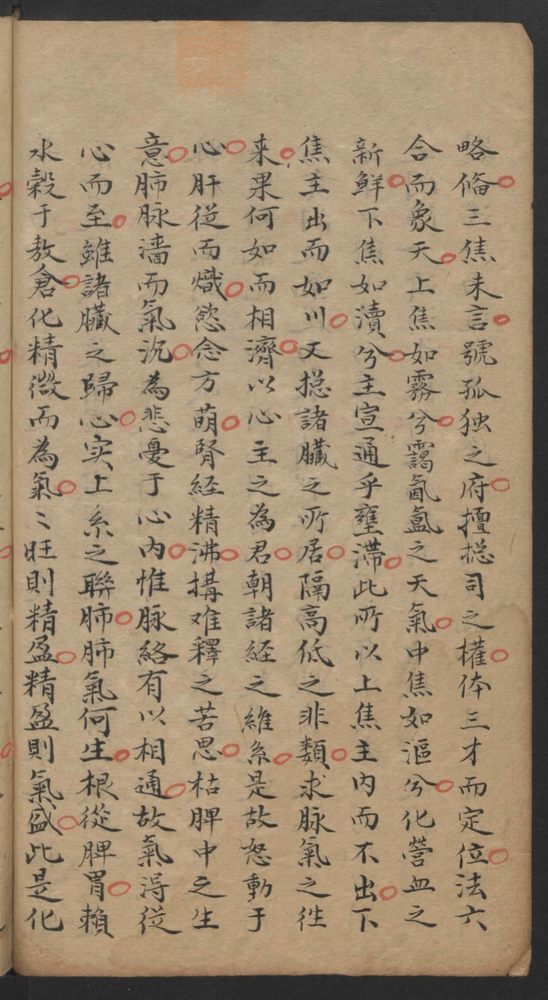 略俻三焦未言號孤独之府擅揔司之權体三才而定位法六
合而象天上焦如霧兮靄氤氳之天氣中焦如漚兮化營血之
新鮮下焦如瀆兮主宣通乎壅滯此所以上焦主内而不出下
焦主出而如川又揔諸臟之所居隔高低之非類求脉氣之徃
来果何如而相濟以心主之為君朝諸経之維系是故怒動于
心肝從而熾慾念方萌腎経精沸搆难釋之苦思枯脾中之生
意肺脉濇而氣沉為悲憂于心内惟脉絡有以相通故氣淂從
心而至雖諸臟之歸心实上系之聯肺肺氣何生根從脾胃賴
水穀于敖倉化精微而為氣〻旺則精盈精盈則氣盛此是化